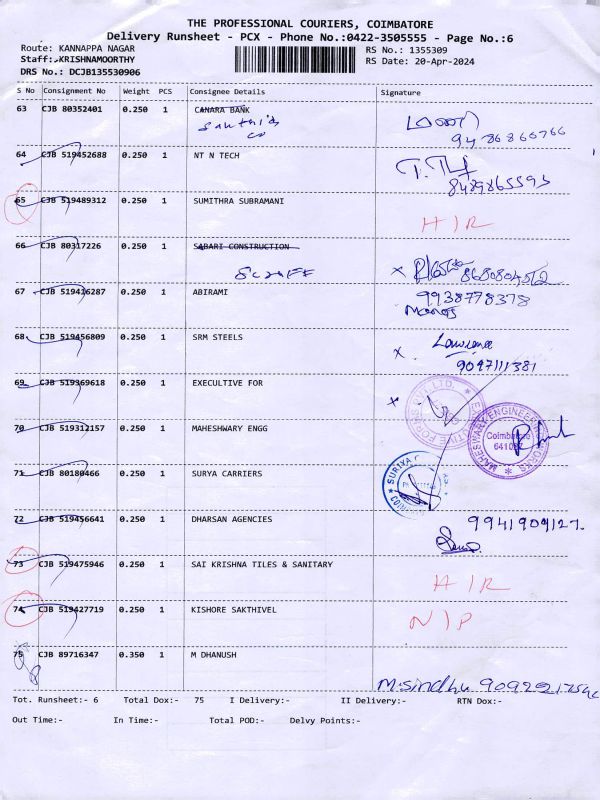 THE PROFESSIONAL COURIERS, COIMBATORE
Delivery Runsheet - PCX - Phone No.:0422-3505555 - Page No.:6
Route: KANNAPPA NAGAR
RS No.: 1355309
Staff:.KRISHNAMOORTHY
RS Date: 20-Apr-2024
DRS No.: DCJB135530906
S No Consignment No Weight PCS Consignee Details Signature
63 CJB 80352401 0.250 1 CANARA BANK
9486860766
64 CJB 519452688 0.250 1 NT N TECH
8489865593
65 CJB 519489312 0.250 1 SUMITHRA SUBRAMANI
H/R
66 CJB 80317226 0.250 1 SABARI CONSTRUCTION
67 CJB 519416287 0.250 1 ABIRAMI
9938778378
Manoj
68 CJB 519456809 0.250 1 SRM STEELS
Lawrence
9047111381
69 CJB 519369618 0.250 1 EXECULTIVE FOR
70 CJB 519312157 0.250 1 MAHESHWARY ENGG
MAHESWARY ENGINEERING WORKS
Coimbatore
71 CJB 80180466 0.250 1 SURYA CARRIERS
SURIYA
72 CJB 519456641 0.250 1 DHARSAN AGENCIES
9941909127.
73 CJB 519475946 0.250 1 SAI KRISHNA TILES & SANITARY
H/R
74 CJB 519427719 0.250 1 KISHORE SAKTHIVEL
N/P
75 CJB 89716347 0.350 1 M DHANUSH
M.Sindhu
Tot. Runsheet:- 6 Total Dox:- 75 I Delivery:- II Delivery:- RTN Dox:-
Out Time:- In Time:- Total POD:- Delvy Points:-